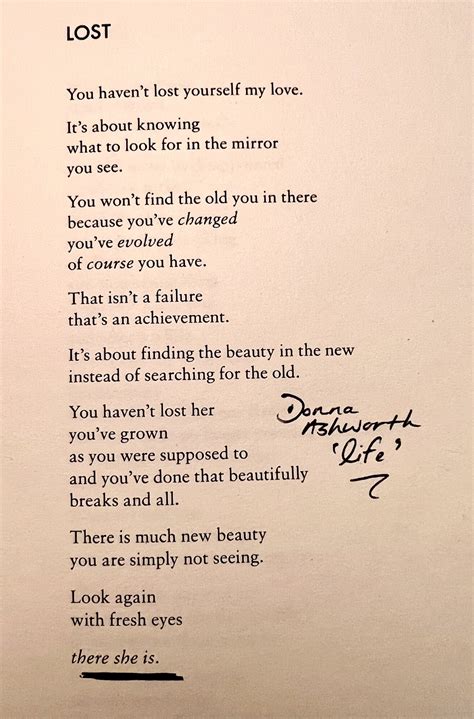 LOST
You haven't lost yourself my love.
It's about knowing
what to look for in the mirror
you see.
You won't find the old you in there
because you've changed
you've evolved
of course you have.
That isn't a failure
that's an achievement.
It's about finding the beauty in the new
instead of searching for the old.
You haven't lost her
you've grown
as you were supposed to
and you've done that beautifully
breaks and all.
Donna
Ashworth
'life'
There is much new beauty
you are simply not seeing.
Look again
with fresh eyes
there she is.